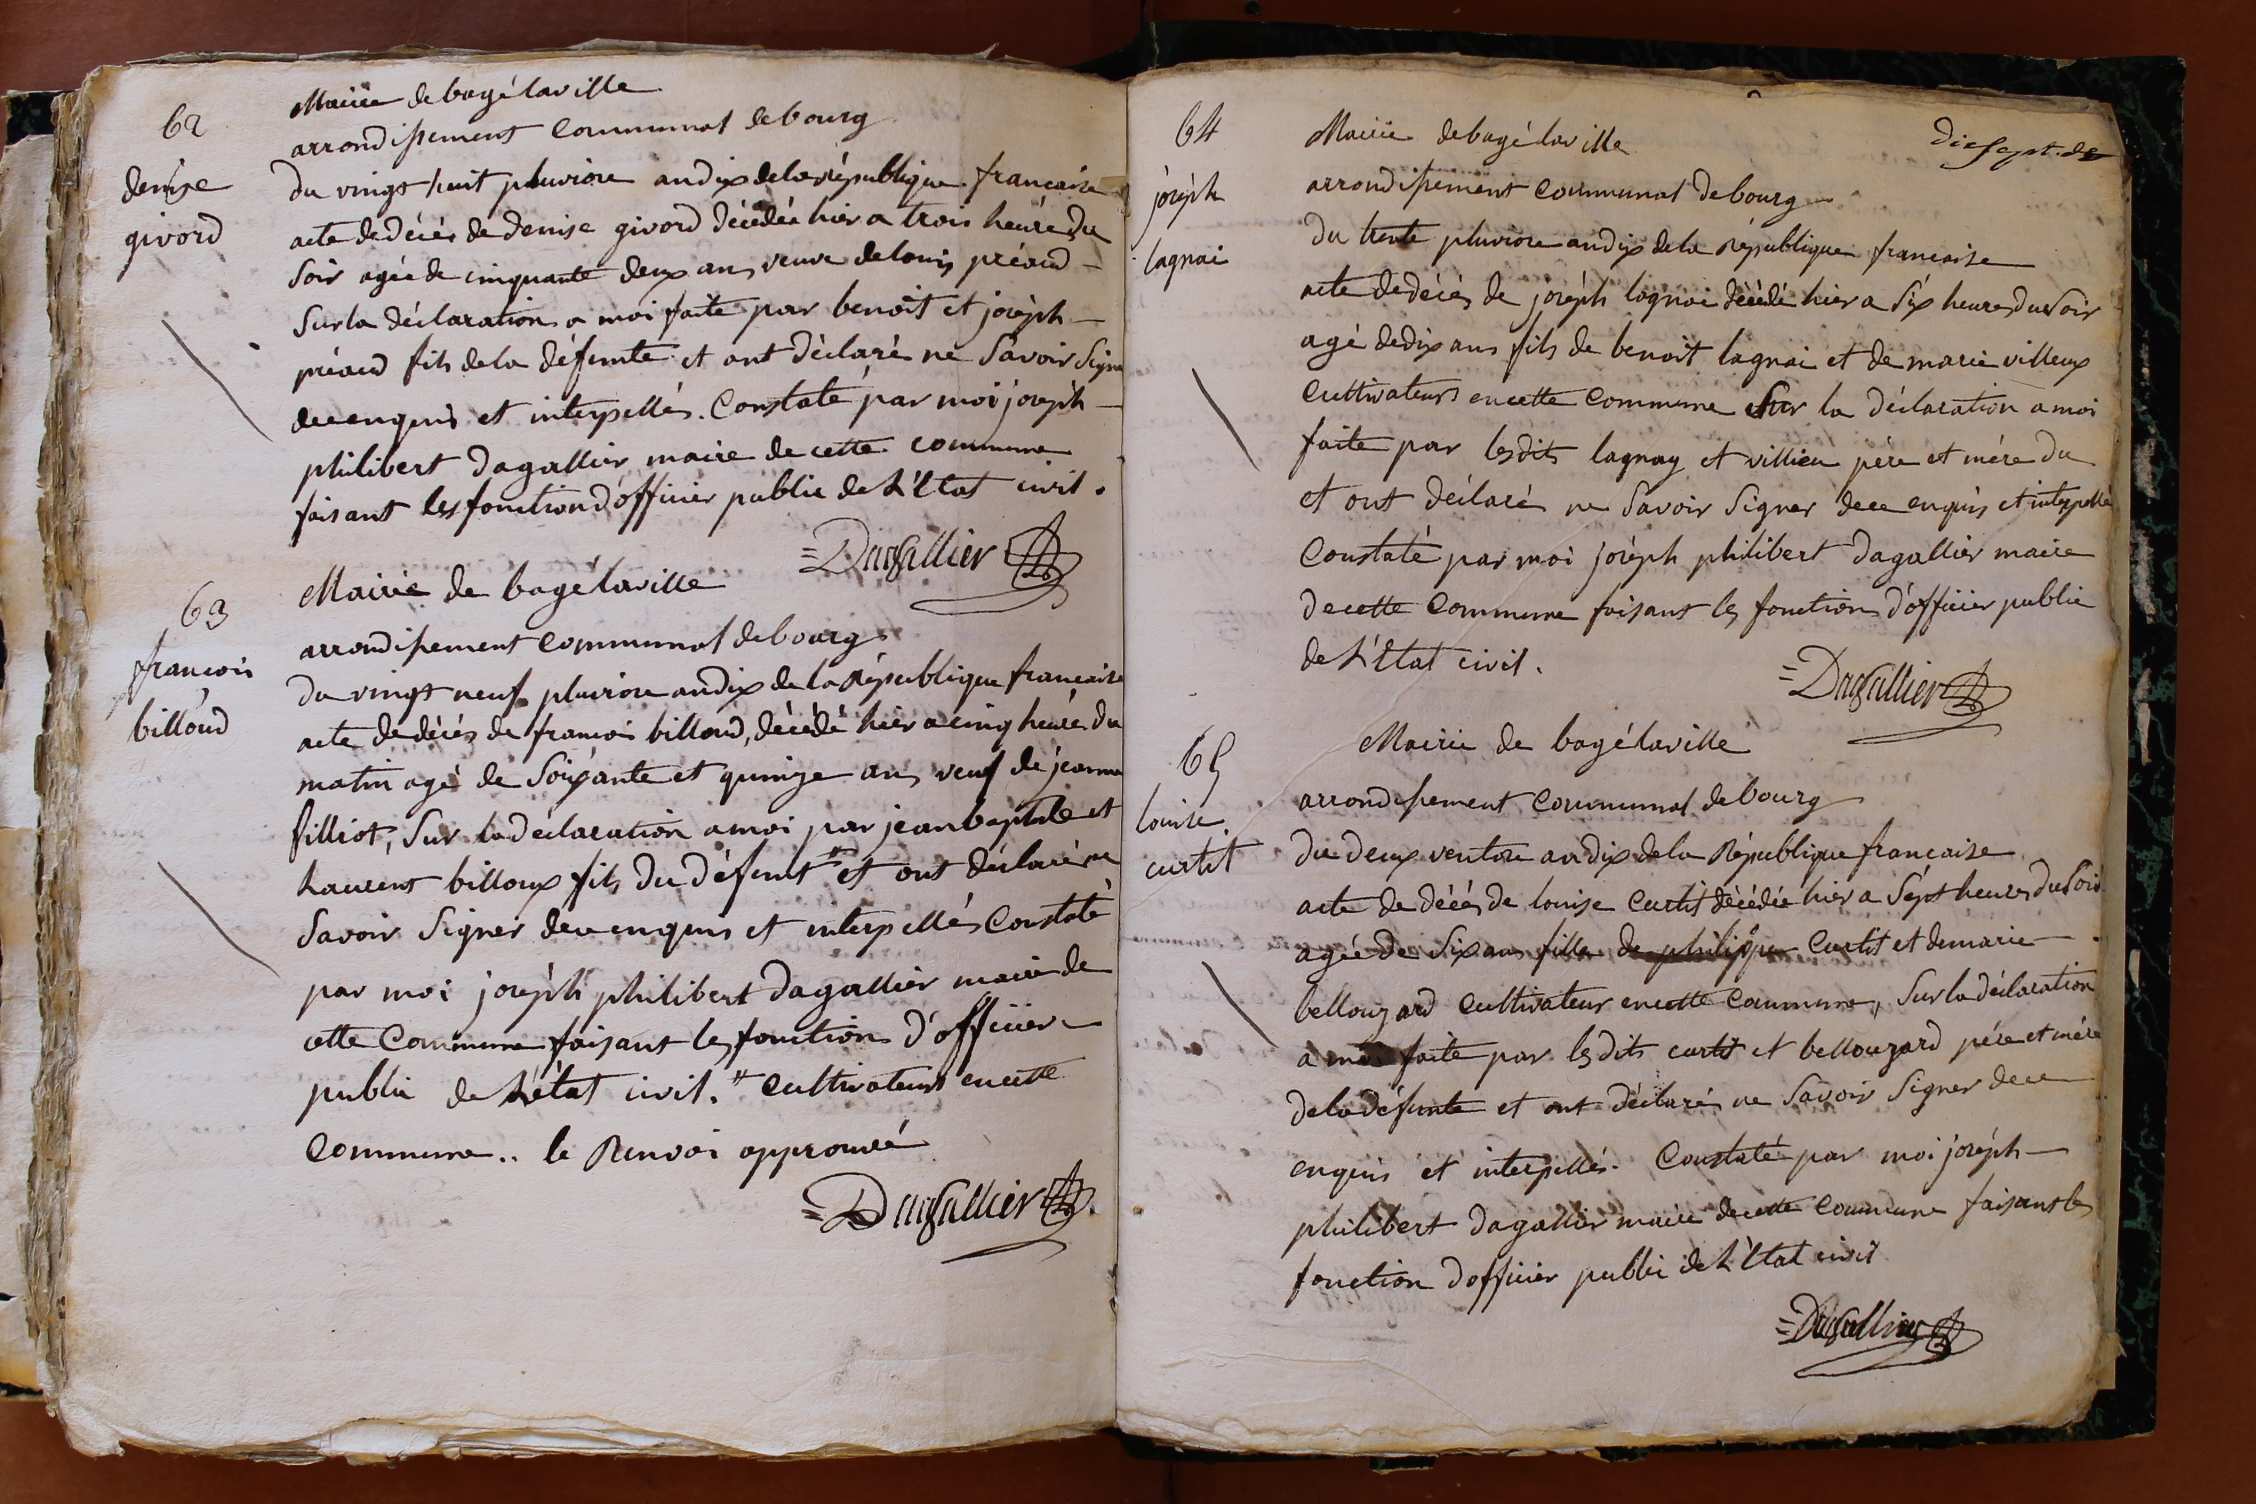 62
denise
givord
Mairie de bagé la ville
arrondissement communal de bourg
du vingt huit pluviose an dix de la république francaise
acte de décés de denise givord décédée hier a trois heures du
soir agée de cinquante deux ans veuve de louis préaud
sur la déclaration a moi faite par benoit et joséph
préaud fils de la défunte et ont déclaré ne savoir signe
de ce enquis et interpellés. Constaté par moi joséph
philibert dagallier maire de cette commune
faisant les fonction d'officier public de L'Etat civil.
=Dagallier
63
francois
billoud
Mairie de bagé la ville
arrondissement communal de bourg
du vingt neuf pluviose an dix de la République francaise
acte de décés de francois billoud, décédé hier a cinq heures du
matin agé de soixante et quinze ans veuf de jeanne
filliot, sur la déclaration a moi par jean baptiste et
Laurent billoux fils du défunt # et ont déclaré ne
savoir signer de ce enquis et interpellés Constaté
par moi joséph philibert dagallier maire de
cette Commune faisant les fonction d'officier
public de L'état civil. # cultivateurs en cette
Commune.. le Renvoi approuvé
=Dagallier
dix sept. de
64
joséph
lagnai
Mairie de bagé la ville
arrondissement communal de bourg
du trente pluviose an dix de la République francaise
acte de décés de joséph lagnai décédé hier a six heures du soir
agé de dix ans fils de benoit lagnai et de marie villeux
cultivateurs en cette commune Sur la déclaration a moi
faite par lesdits lagnay et villieu pére et mére du
et ont déclaré ne savoir signer de ce enquis et interpellé
Constaté par moi joséph philibert dagallier maire
de cette commune faisant les fonction d'officier public
de L'Etat civil.
=Dagallier
65
louise
curtit
Mairie de bagé la ville
arrondissement communal de bourg
du deux ventose an dix de la République francaise
acte de décés de louise curtit décédée hier a sépt heures du soir
agée de six ans fille de philippe curtit et de marie
bellouzard cultivateur en cette commune, sur la déclaration
a moi faite par lesdits curtit et bellouzard pére et mére
de la défunte et ont déclaré ne savoir signer de ce
enquis et interpellés. Constaté par moi joséph
philibert dagallier maire de cette commune faisant les
fonction d'officier public de L'Etat civil
=Dagallier